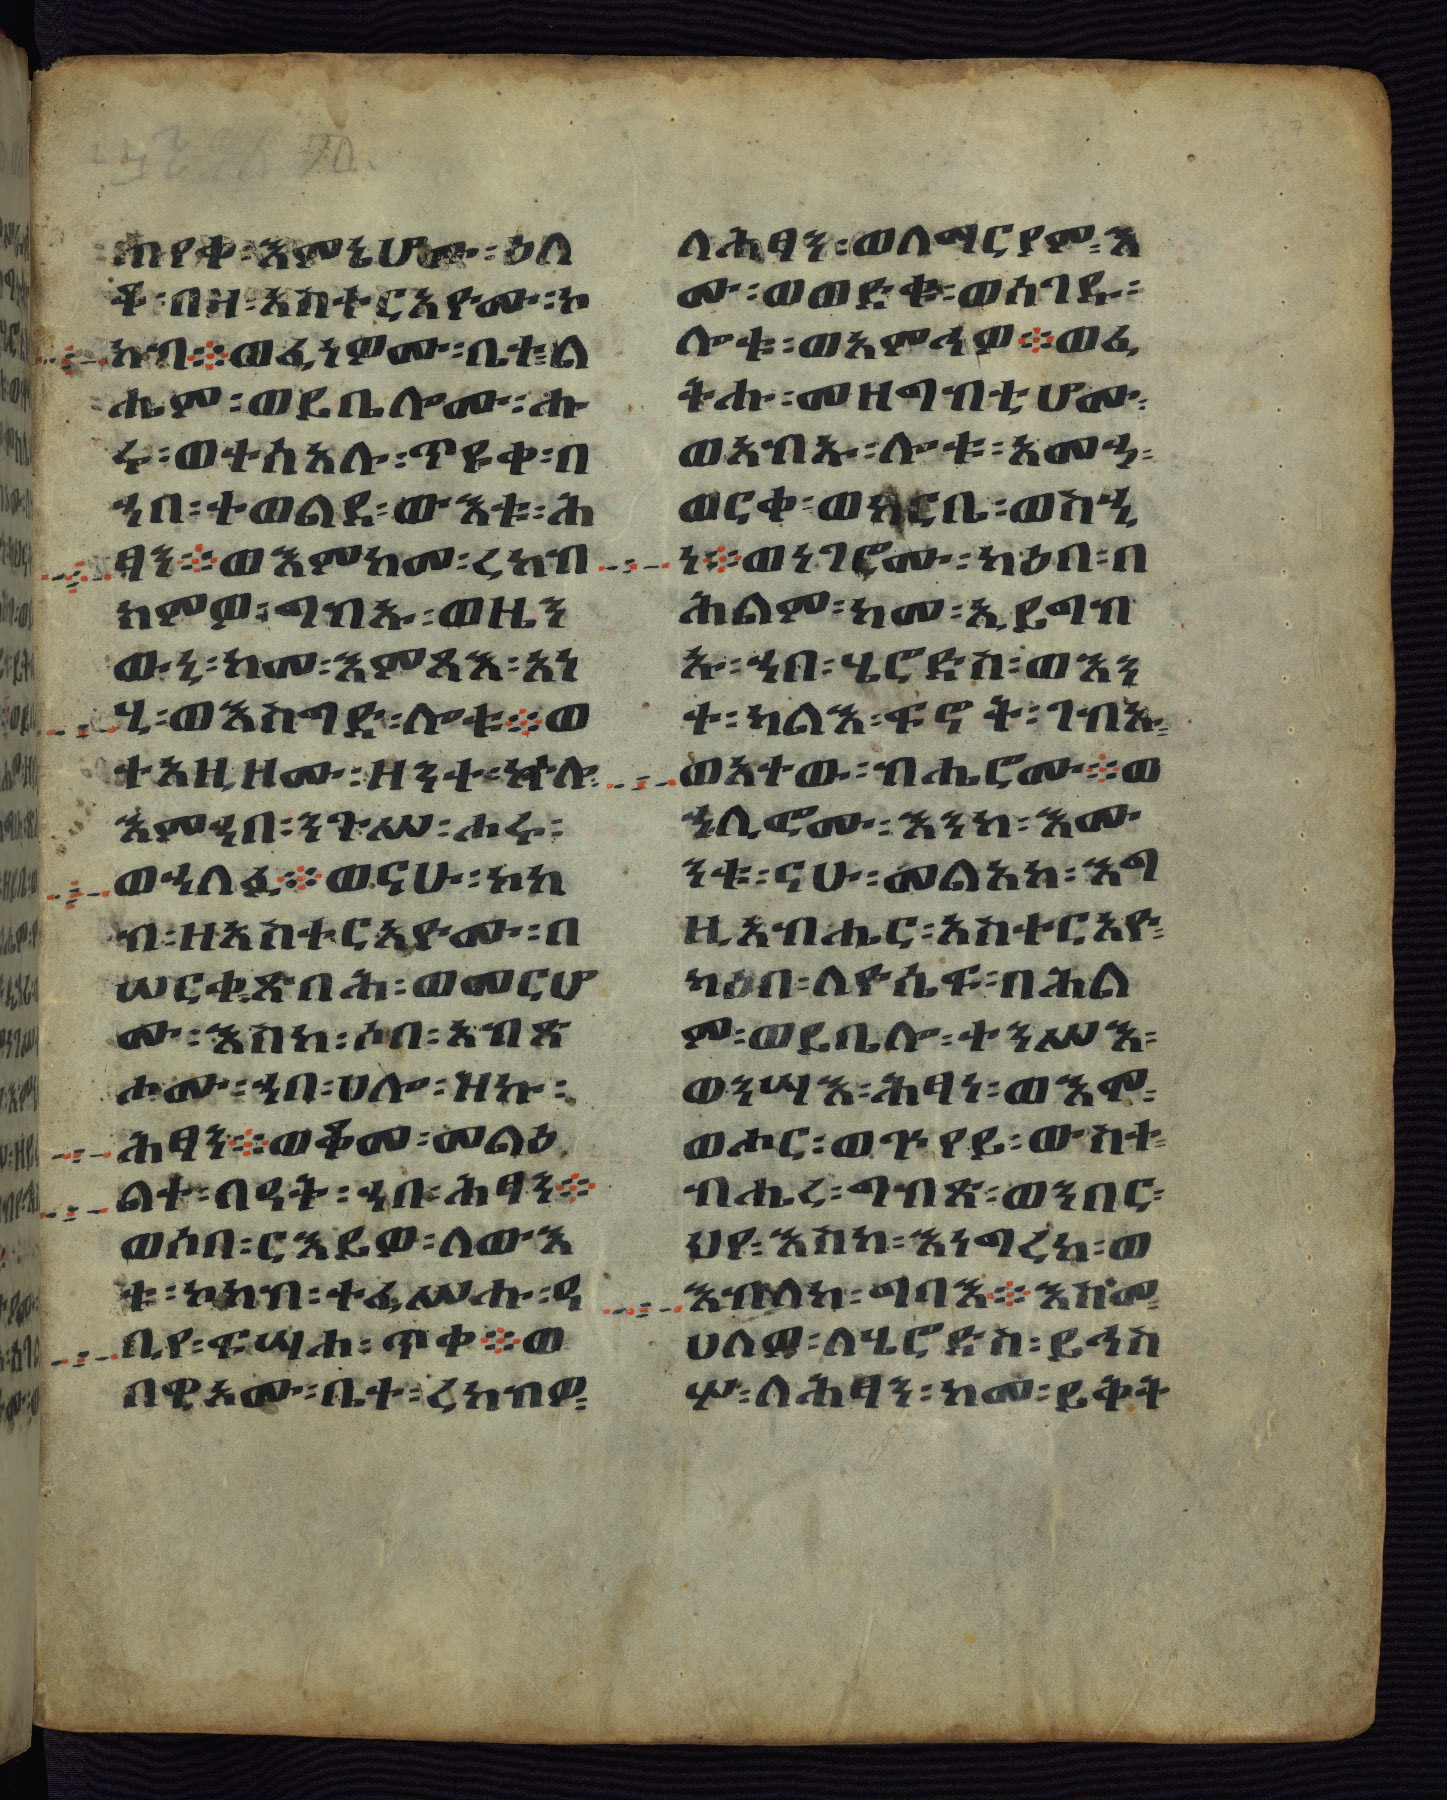 ጠየቀ፡እምኔሆሙ፡ዕለ
ቶ፡በዘ፡አስተርአዮሙ፡ኮ
ከብ፨ወፈነዎሙ፡ቤተ፡ል
ሔም፡ወይቤሎሙ፡ሑ
ሩ፡ወተስአሉ፡ጥዩቀ፡በ
ኀበ፡ተወልደ፡ውእቱ፡ሕ
ፃን፨ወእምከመ፡ረከብ
ክምዎ፡ግብኡ፡ወዜን
ውኒ፡ከመ፡እምጻእ፡አነ
ሂ፡ወእስግድ፡ሎቱ፨ወ
ተአዚዞሙ፡ዘንተ፡ኵሎ
እምኀበ፡ንጉሥ፡ሖሩ፡
ወኀለፉ፨ወናሁ፡ኮከ
ብ፡ዘአስተርአዮሙ፡በ
ሠርቁ፡ጽበሕ፡ወመርሆ
ሙ፡እስከ፡ሶበ፡አብጽ
ሖሙ፡ኀበ፡ሀሎ፡ዝኩ፡
ሕፃን፨ወቆመ፡መልዕ
ልተ፡በዓት፡ኀበ፡ሕፃን፨
ወሶበ፡ርእይዎ፡ለውእ
ቱ፡ኮከብ፡ተፈሥሑ፡ዓ
ቢየ፡ፍሣሐ፡ጥቀ፨ወ
በዊኦሙ፡ቤተ፡ረከብዎ
ለሕፃን፡ወለማርያም፡እ
ሙ፡ወወድቁ፡ወሰገዱ፡
ሎቱ፡ወአምኅዎ፨ወፈ
ትሑ፡መዛግብቲሆሙ
ወአብኡ፡ሎቱ፡አምኃ፡
ወርቀ፡ወከርቤ፡ወስኂ
ነ፨ወነገሮሙ፡ካዕበ፡በ
ሕልም፡ከመ፡ኢይግብ
ኡ፡ኀበ፡ሄሮድስ፡ወእን
ተ፡ካልእ፡ፍኖት፡ገብኡ
ወአተው፡ብሔሮሙ፨ወ
ኀሊፎሙ፡እንከ፡እሙ
ንቱ፡ናሁ፡መልአከ፡እግ
ዚአብሔር፡አስተርአዮ
ካዕበ፡ለዮሴፍ፡በሕል
ም፡ወይቤሎ፡ተንሥእ፡
ወንሣእ፡ሕፃነ፡ወእሞ
ወሑር፡ወጕየይ፡ውስተ
ብሔረ፡ግብጽ፡ወንበር
ህየ፡እስከ፡እነግረከ፡ወ
እብለከ፡ግባእ፨እስመ
ሀለዎ፡ለሄሮድስ፡ይኅሥ
ሦ፡ለሕፃን፡ከመ፡ይቅት